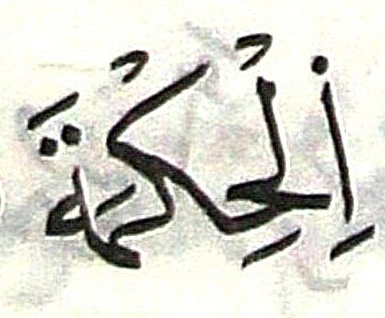 اِلْحِكْمَةَ